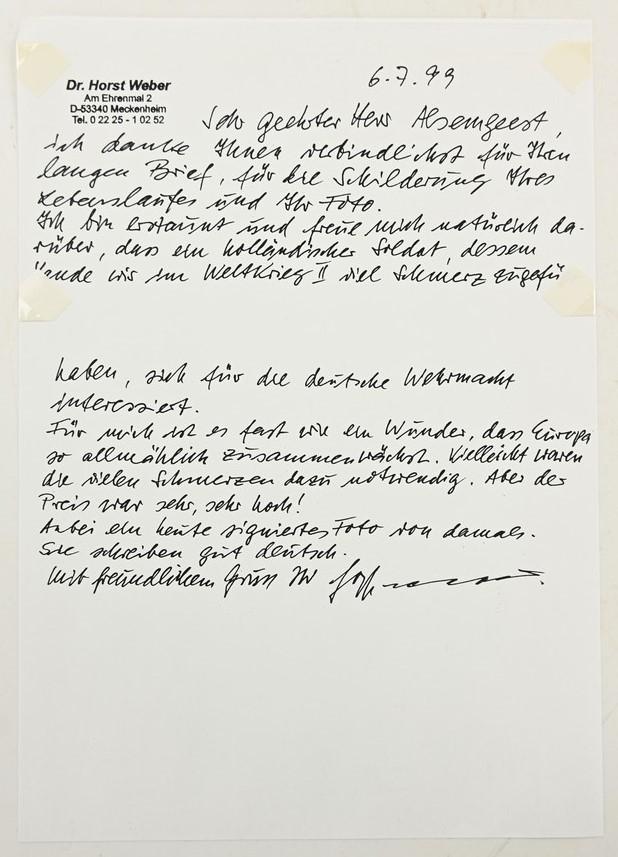 Dr. Horst Weber
Am Ehrenmal 2
D-53340 Meckenheim
Tel. 0 22 25 - 1 02 52
6.7.99
Sehr geehrter Herr Alsemgeest,
ich danke Ihnen verbindlichst für Ihren
langen Brief, für die Schilderung Ihres
Lebenslaufes und Ihr Foto.
Ich bin erstaunt und freue mich natürlich da-
rüber, dass ein holländischer Soldat, dessem
ande wir im Weltkrieg II viel Schmerz zugefü
haben, sich für die deutsche Wehrmacht
interessiert.
Für mich ist es fast wie ein Wunder, dass Europa
so allmählich zusammenwächst. Vielleicht waren
die vielen Schmerzen dazu notwendig. Aber der
Preis war sehr, sehr hoch!
Anbei ein heute signiertes Foto von damals.
Sie schreiben gut deutsch.
Mit freundlichem Gruss Ihr